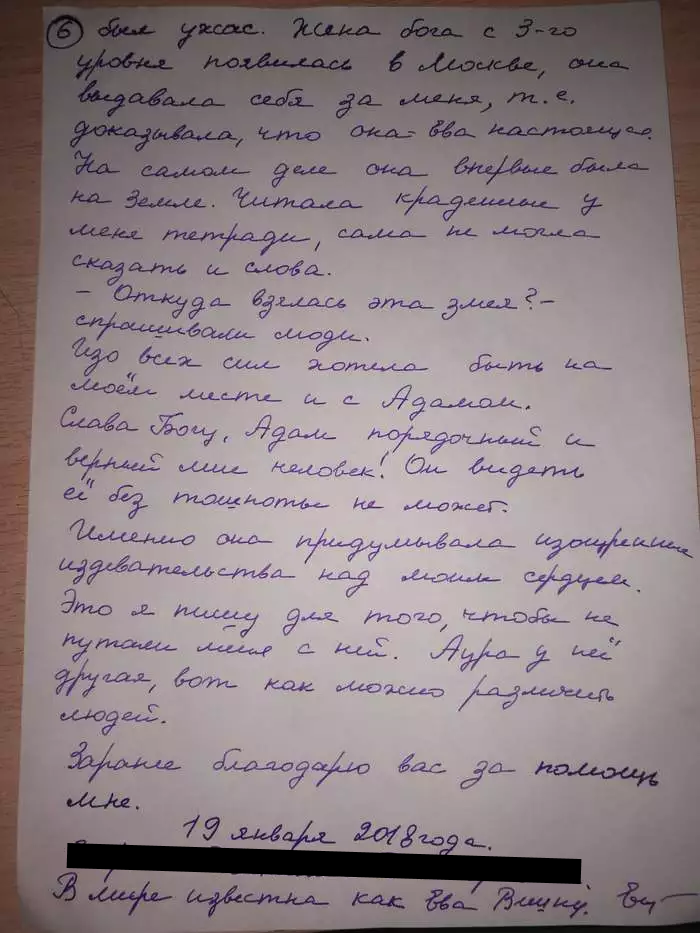 6 был ужас. Жена бога с 3-го
уровня появилась в Москве, она
выдавала себя за меня, т.е.
доказывала, что она - Ева настоящая.
На самом деле она впервые была
на Земле. Читала краденные у
меня тетради, сама не могла
сказать и слова.
- Откуда взялась эта змея? -
спрашивали люди.
Изо всех сил хотела быть на
моём месте и с Адамом.
Слава Богу, Адам порядочный и
верный мне человек! Он видеть
её без тошноты не может.
Именно она придумывала изощренные
издевательства над моим сердцем.
Это я пишу для того, чтобы не
путали меня с ней. Аура у неё
другая, вот как можно различить
людей.
Заранее благодарю вас за помощь
мне.
19 января 2018 года.
В мире известна как Ева Вишну.